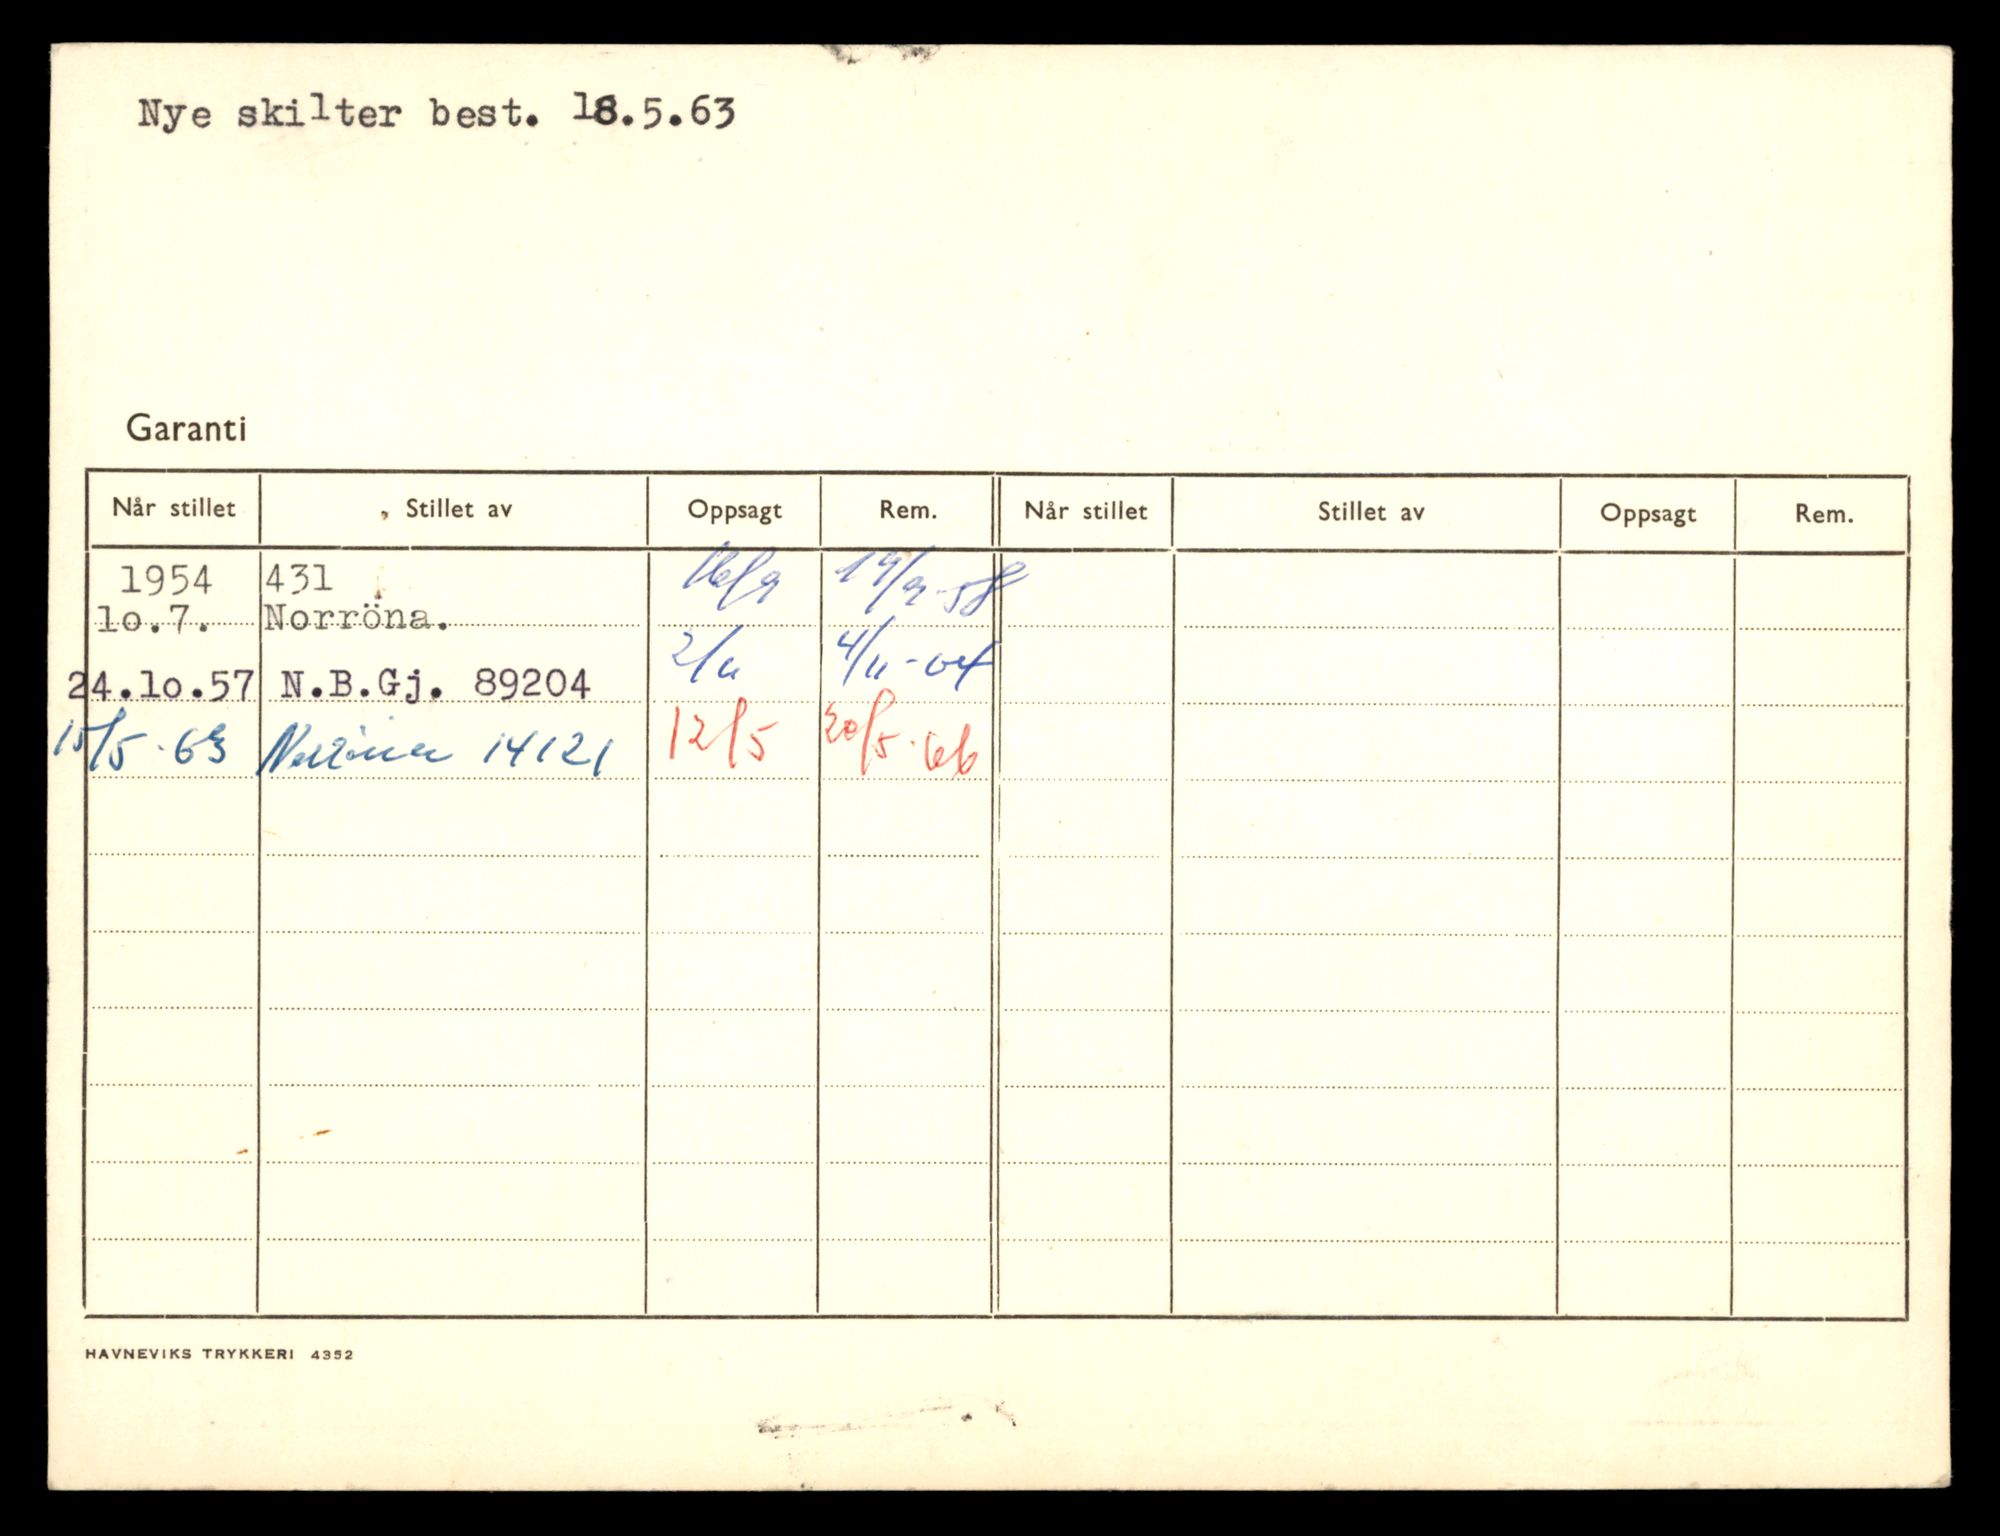 Nye skilter best. 18.5.63
Garanti
Når stillet Stillet av Oppsagt Rem. Når stillet Stillet av Oppsagt Rem.
1954 431 16/9 19/9-58
10.7. Norröna.
2/11 4/11-64
24.10.57 N.B.Gj. 89204
15/5-63 Norröna 14121 12/5 20/5-66
HAVNEVIKS TRYKKERI 4352